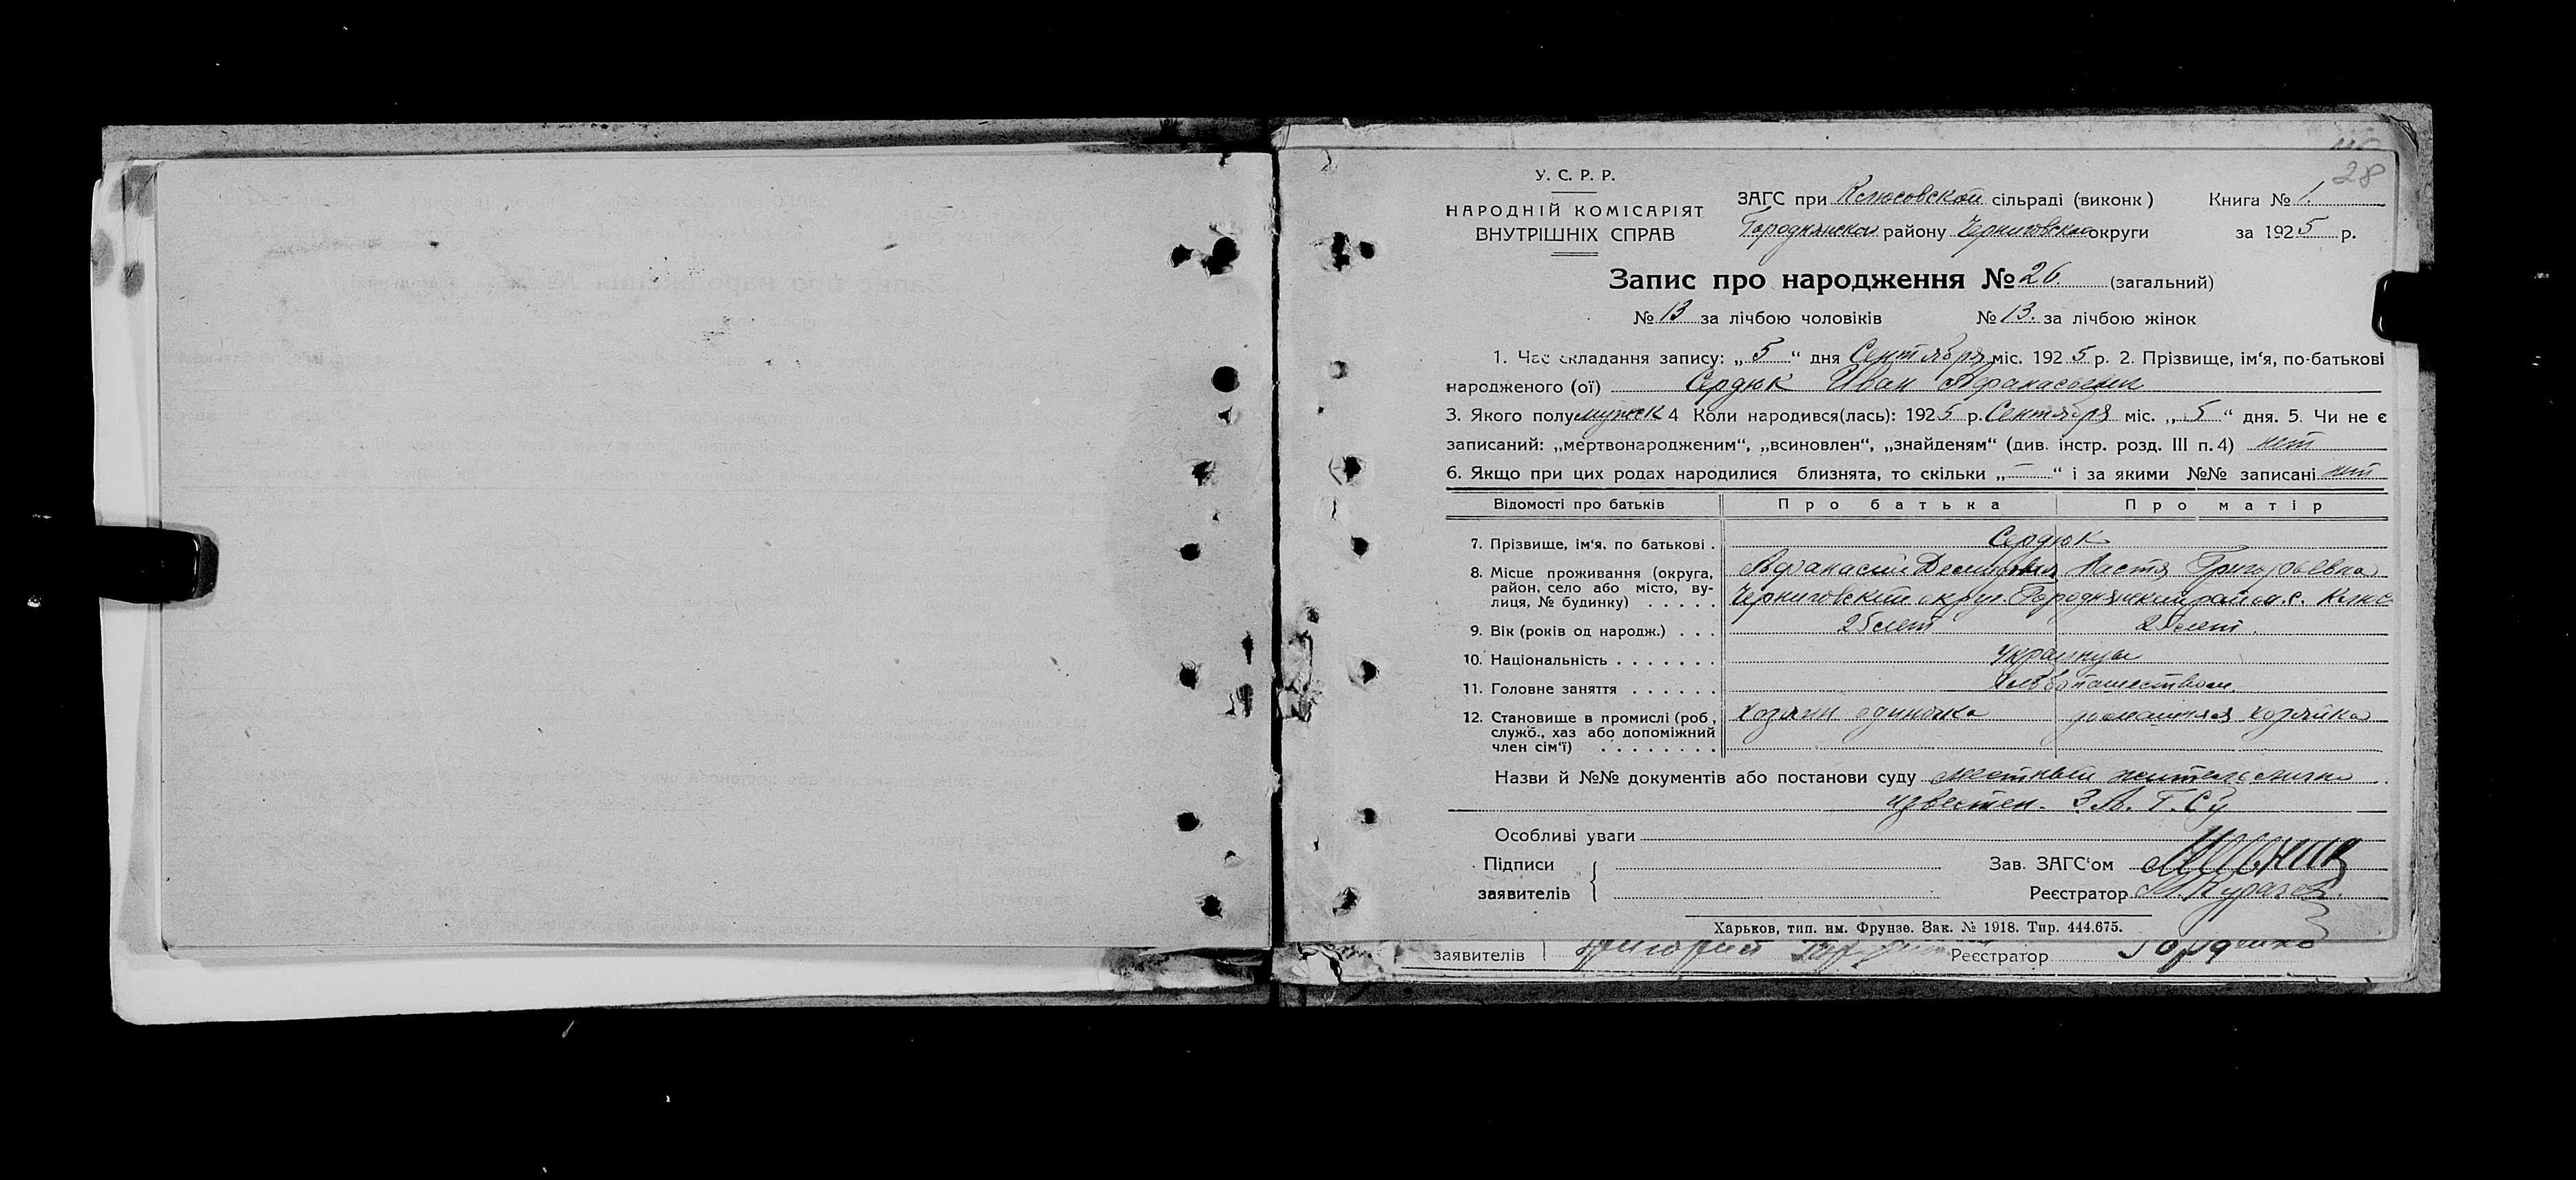 28
У. С. Р. Р.
НАРОДНІЙ КОМІСАРІЯТ
ВНУТРІШНІХ СПРАВ
ЗАГС при Клюсовской сільраді (виконк) Книга № 1.
Городнянского району Черниговской округи за 1925 р.
Запис про народження № 26. (загальний)
№ 13 за лічбою чоловіків № 13. за лічбою жінок
1. Час складання запису: „5“ дня Сентября міс. 1925 р. 2. Прізвище, ім‘я, по-батькові
народженого (ої) Сердюк Иван Афанасьевич
3. Якого полу мужск 4 Коли народився(лась): 1925 р. Сентября міс. „5“ дня. 5. Чи не є
записаний: „мертвонародженим“, „всиновлен“, „знайденям“ (див. інстр. розд. III п. 4) нет
6. Якщо при цих родах народилися близнята, то скільки „—“ і за якими №№ записані нет
Відомості про батьків Про батька Про матір
7. Прізвище, ім‘я, по батькові . Сердюк
8. Місце проживання (округа, Афанасий Демидович Настя Григорьевна
район, село або місто, ву-
лиця, № будинку) . . . . . Черниговский округ. Городнянский район. с. Клюс
9. Вік (років од народж.) . . . 25 лет 25 лет.
10. Національність . . . . . . . Украинцы
11. Головне заняття . . . . . . Хлебопашеством.
12. Становище в промислі (роб, хозяин одиночка домашняя хозяйка
служб., хаз або допоміжний
член сім‘ї) . . . . . . . .
Назви й №№ документів або постанови суду местный житель лично
известен. З.А.Г.Су
Особливі уваги
Підписи Зав. ЗАГС‘ом
заявителів Реєстратор
Харьков, тип. им. Фрунзе. Зак. № 1918. Тир. 444.675.
заявителів Григорий Реєстратор